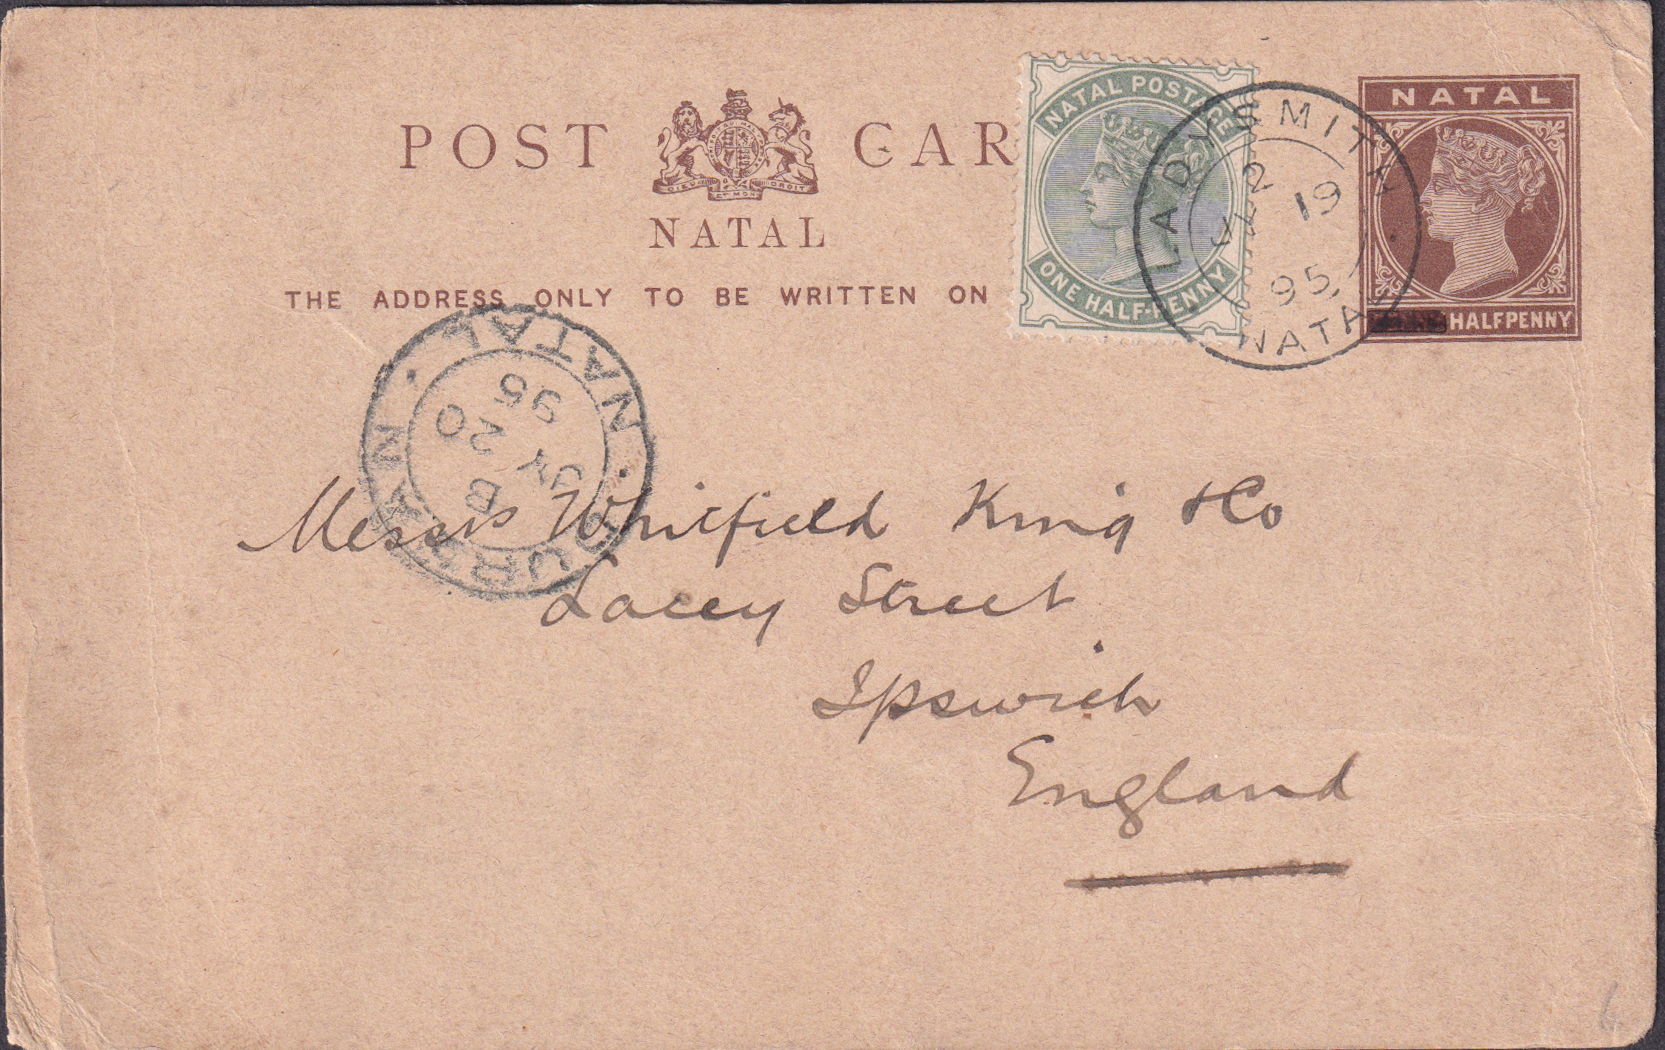 POST CAR
DIEU ET MON DROIT
NATAL
THE ADDRESS ONLY TO BE WRITTEN ON
NATAL POSTAGE
ONE HALF-PENNY
LADYSMITH
2
JY 19
95
NATAL
NATAL
HALFPENNY
DURBAN
B
JY 20
95
NATAL
Messrs Whitfield King & Co
Lacey Street
Ipswich
England